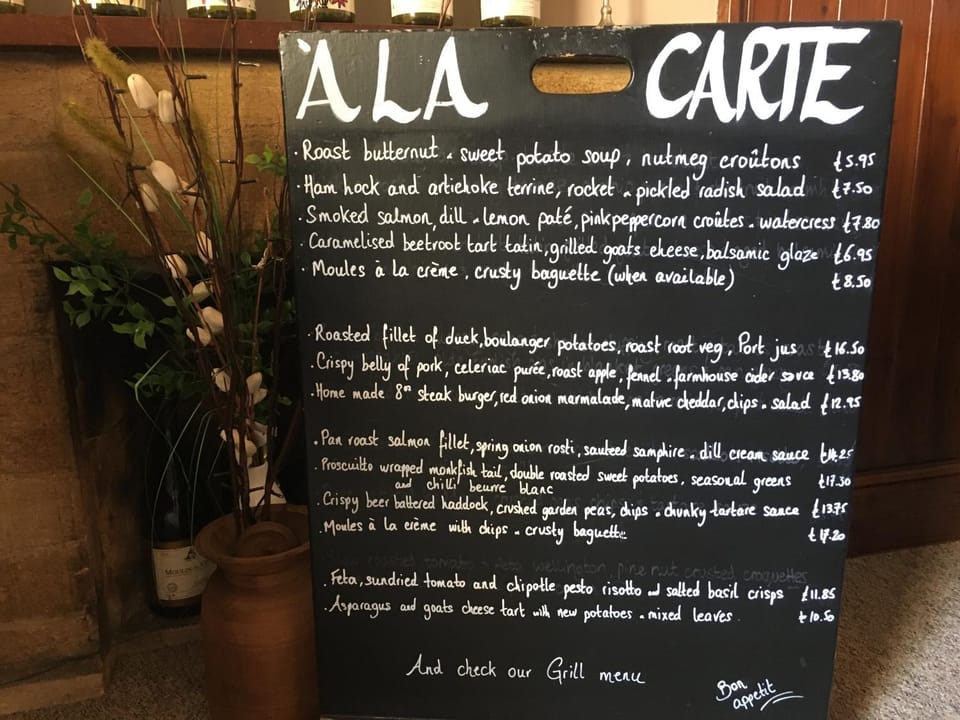 À LA CARTE
· Roast butternut & sweet potato soup, nutmeg croûtons £5.95
· Ham hock and artichoke terrine, rocket & pickled radish salad £7.50
· Smoked salmon, dill & lemon paté, pink peppercorn croûtes & watercress £7.80
· Caramelised beetroot tart tatin, grilled goats cheese, balsamic glaze £6.95
· Moules à la crème, crusty baguette (when available) £8.50
· Roasted fillet of duck, boulanger potatoes, roast root veg, Port jus £16.50
· Crispy belly of pork, celeriac purée, roast apple, fennel & farmhouse cider sauce £13.80
· Home made 8oz steak burger, red onion marmalade, mature cheddar, chips & salad £12.95
· Pan roast salmon fillet, spring onion rosti, sauteed samphire & dill cream sauce £14.25
· Proscuitto wrapped monkfish tail, double roasted sweet potatoes, seasonal greens £17.30
and chilli beurre blanc
· Crispy beer battered haddock, crushed garden peas, chips & chunky tartare sauce £13.75
· Moules à la crème with chips & crusty baguette £17.20
· Feta, sundried tomato and chipotle pesto risotto and salted basil crisps £11.85
· Asparagus and goats cheese tart with new potatoes & mixed leaves £10.50
And check our Grill menu
Bon
appetit